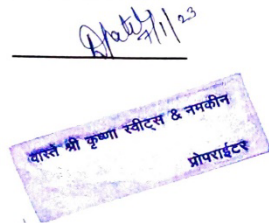 7/1/23
वास्ते श्री कृष्णा स्वीट्स & नमकीन
प्रोपराईटर